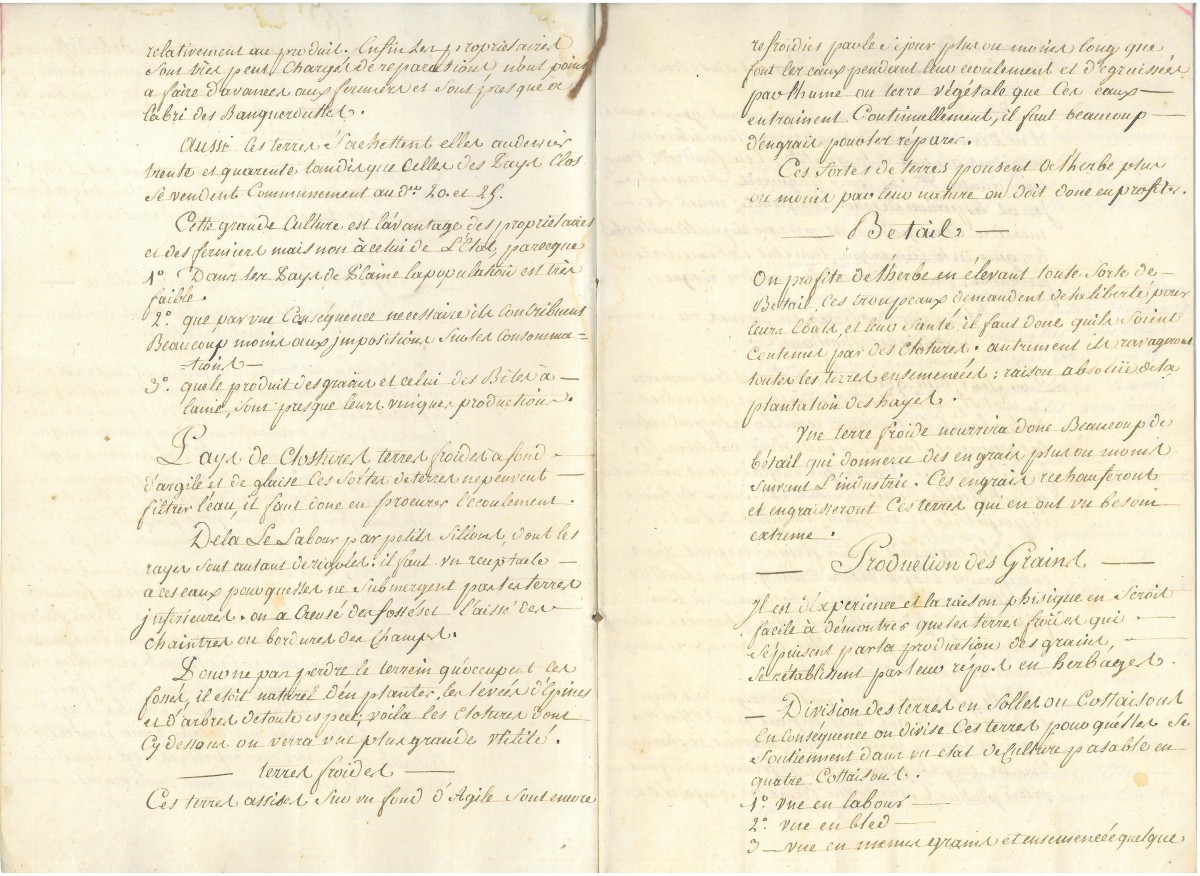 relativement au produit. Enfin les propriétaires
sont très peu chargés de reparations n'ont point
a faire d'avances aux fermiers et sont presque a
l'abri des Banqueroutes.
aussi les terres s'achettent elles audenier
trente et quarente tandis que celles des Pays Clos
se vendent Communement au d.er 20. et 25.
Cette grande Culture est l'avantage des propriétaires
et des fermiers mais non à celui de L'État, parceque
1° Dans les Pays de Plaine la population est très
faible.
2° que par une Conséquence necessaire ils Contribuent
Beaucoup moins aux impositions sur les consomma=
tions —
3° que le produit des grains et celui des Bêtes à —
laine, sont presque leurs uniques productions.
Pays de Clostures terres froides a fond —
d'argile et de glaise ces sortes de terres ne peuvent —
filtrer l'eau, il faut donc en procurer l'écoulement.
Dela Le Labour par petits sillons, dont les
rayes sont autant de rigoles. il faut un receptacle —
a ces eaux pour qu'elles ne submergent pas les terres
inferieures. on a Creusé des fossés et laissé des
chaintres ou bordures des Champs.
Pour ne pas perdre le terrein qu'occupent ces
fossés, il etoit naturel d'en planter les levées d'Epines
et d'arbres de toute espece, voila les Clotures dont
Cy dessous on verra une plus grande utilité.
— terres froides —
Ces terres assises sur un fond d'Agile sont encore
refroidies par le séjour plus ou moins long que
font les eaux pendant leur ecoulement et dégraissées
par l'humé ou terre végétale que ces eaux —
entrainent Continuellement, il faut beaucoup —
d'engrais pour les réparer.
Ces sortes de terres poussent de l'herbe plus
ou moins par leur nature on doit donc en profiter.
— Bétails —
On profite de l'herbe en élevant toute sorte de —
Bétail, ces troupeaux demandent de la liberté pour
leurs Ebats, et leur santé, il faut donc qu'ils soient
contenus par des Clotures. autrement ils ravageront
toutes les terres ensemencées; raison absolüe de la
plantation des hayes.
Une terre froide nourrira donc Beaucoup de
bétail qui donnera des engrais plus ou moins
suivant L'industrie. Ces engrais rechauferont
et engraisseront Ces terres qui en ont un besoin
extreme.
— Production des Grains —
Il en d'Expérience et la raison phisique en seroit
facile à démontrer que les terres froides qui —
s'epuisent par la production des grains, —
se rétablissent par leur repos en herbages.
— Division des terres en Solles ou Cottaisons
En consequence on divise Ces terres pour qu'elles se
soutiennent dans un etat de Culture passable en
quatre Cottaisons.
1° une en labour —
2° une en bled —
3 — une en menus grains et ensemencée quelque